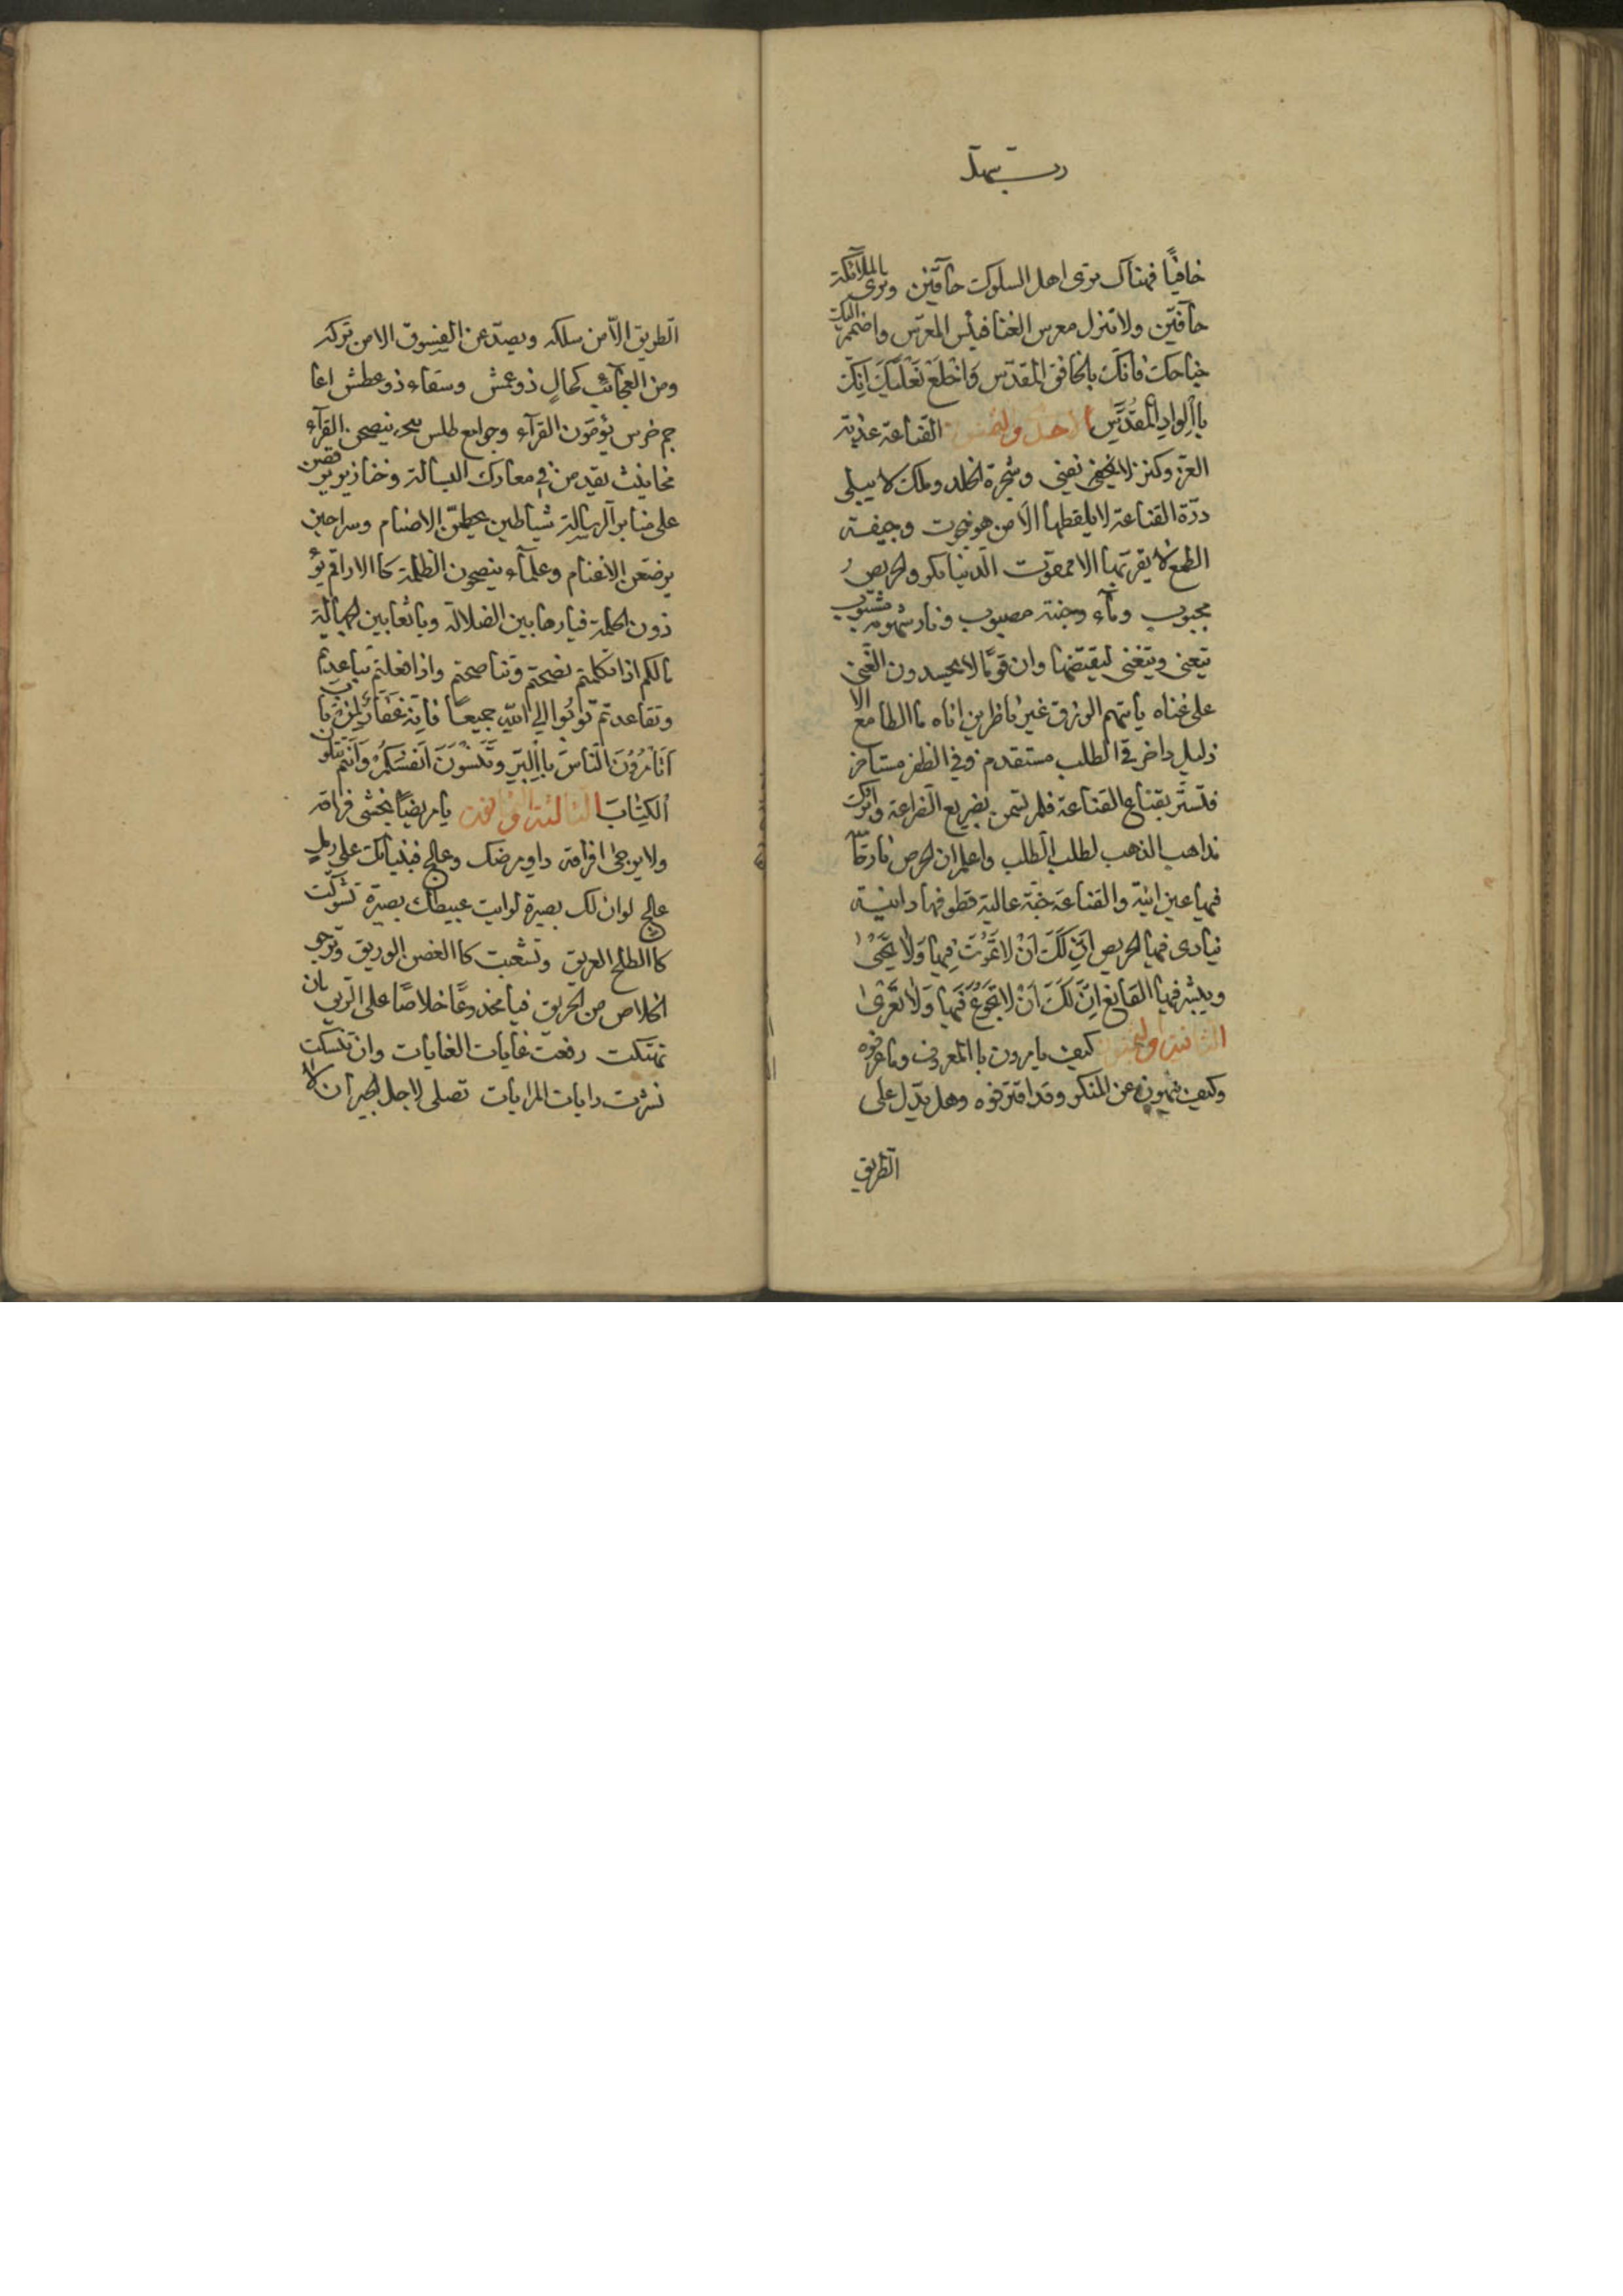 رب سهل
خافيًا فهناك ترى اهل السلوك حآفّين وترى الملآئكة
حآفّين ولا تنزل معرس الغنا فبئس المعرّس واضمم اليك
جناحك فانّك بالخافق المقدّس وَاخْلَعْ نَعْلَيْكَ اِنَّكَ
بِاالْوادِ الْمُقَدَّسِ الاحد والخمسون القناعة عذبة
العزّ وكنز لا يفنى وشجرة الخلد وملك لا يبلى
درّة القناعة لا يلقطها الّا من هو وجيفة
الطمع لا يقربها الا ممقوت الدنيا بكر والحريصُ
مجبوب وماء وجنة مصبوب ونار شهوته مشبوب
يتعنى ويتغنى ليقتضها وان قومًا لا يحسدون الغنى
على غناه ياتيهم الرزق غير ناظرين اناه ما الطامع الا
ذليل داخر فى الطلب مستقدم وفى الظفر مستاخر
فتستّر بقناع القناعة فلم تسمن بضريع الضراعة واترك
مذاهب الذهب لطلب الطلب واعلم ان الحرص نار
فيها عين انية والقناعة جنّة عالية قطوفها دانية
ينادى فيها الحريص اِنَّ لَكَ اَنْ لا تَمُوْتَ فِيها وَلا يَحْيىٰ
ويبشر فيها القانع اِنَّ لَكَ اَنْ لا تَجُوْعَ فِيها وَلا تَعْرىٰ
الثانية والخمسون كيف يامرون باالمعروف وما عرفوه
وكيف ينهون عن المنكر وقد اقترفوه وهل يدّل على
الطريق
الطريق الّا من سلكه ويصدّ عن الفسوق الا من تركه
ومن العجآئب كحال ذو عمش وسقاء ذو عطش اعا
جم خرس يؤمّون القرآء وجوامع طلس ينصحن القرآء
مخانيث يقدمن فى معارك البسالة وخنازير يرقصن
على منابر الرسالة شياطين يحطمن الاصنام وسراحين
يرضعن الاغنام وعلمآء ينصحون الظلمة كاالاراقم يؤ
ذون الحلمة فيا رهابين الضلالة ويا ثعابين الجهالة
مالكم اذا تكلمتم نصحتم وتناصحتم واذا فعلتم تباعدتم
وتقاعدتم تُوبُوا اِلَى اللّهِ جميعًا فانّه غفّارٌ لمن تاب
اَتَأمُرُوْنَ النّاسَ باِالبِرِّ وتَنْسَوْنَ اَنْفُسَكُمْ وَاَنْتُمْ تَتْلُونَ
اَلكِتٰابَ الثالثة والخمسون يا مريضًا يخشى فراقه
ولا يرجى افراقه داو مرضك وعالج فبنيانك على رمل
عالج لو ان لك بصيرة لرايت عبيطك بصيرة تشوّكت
كاالطلح العريق وتشعبت كاالغصن الوريق وترجى
الخلاص من الحريق فيا مخدوعًا خلاصًا على الريق بان
تهتكت رفعت غايات الغايات وان تنسكت
نشرت رايات المرايات تصلى لاجل الجيران لا